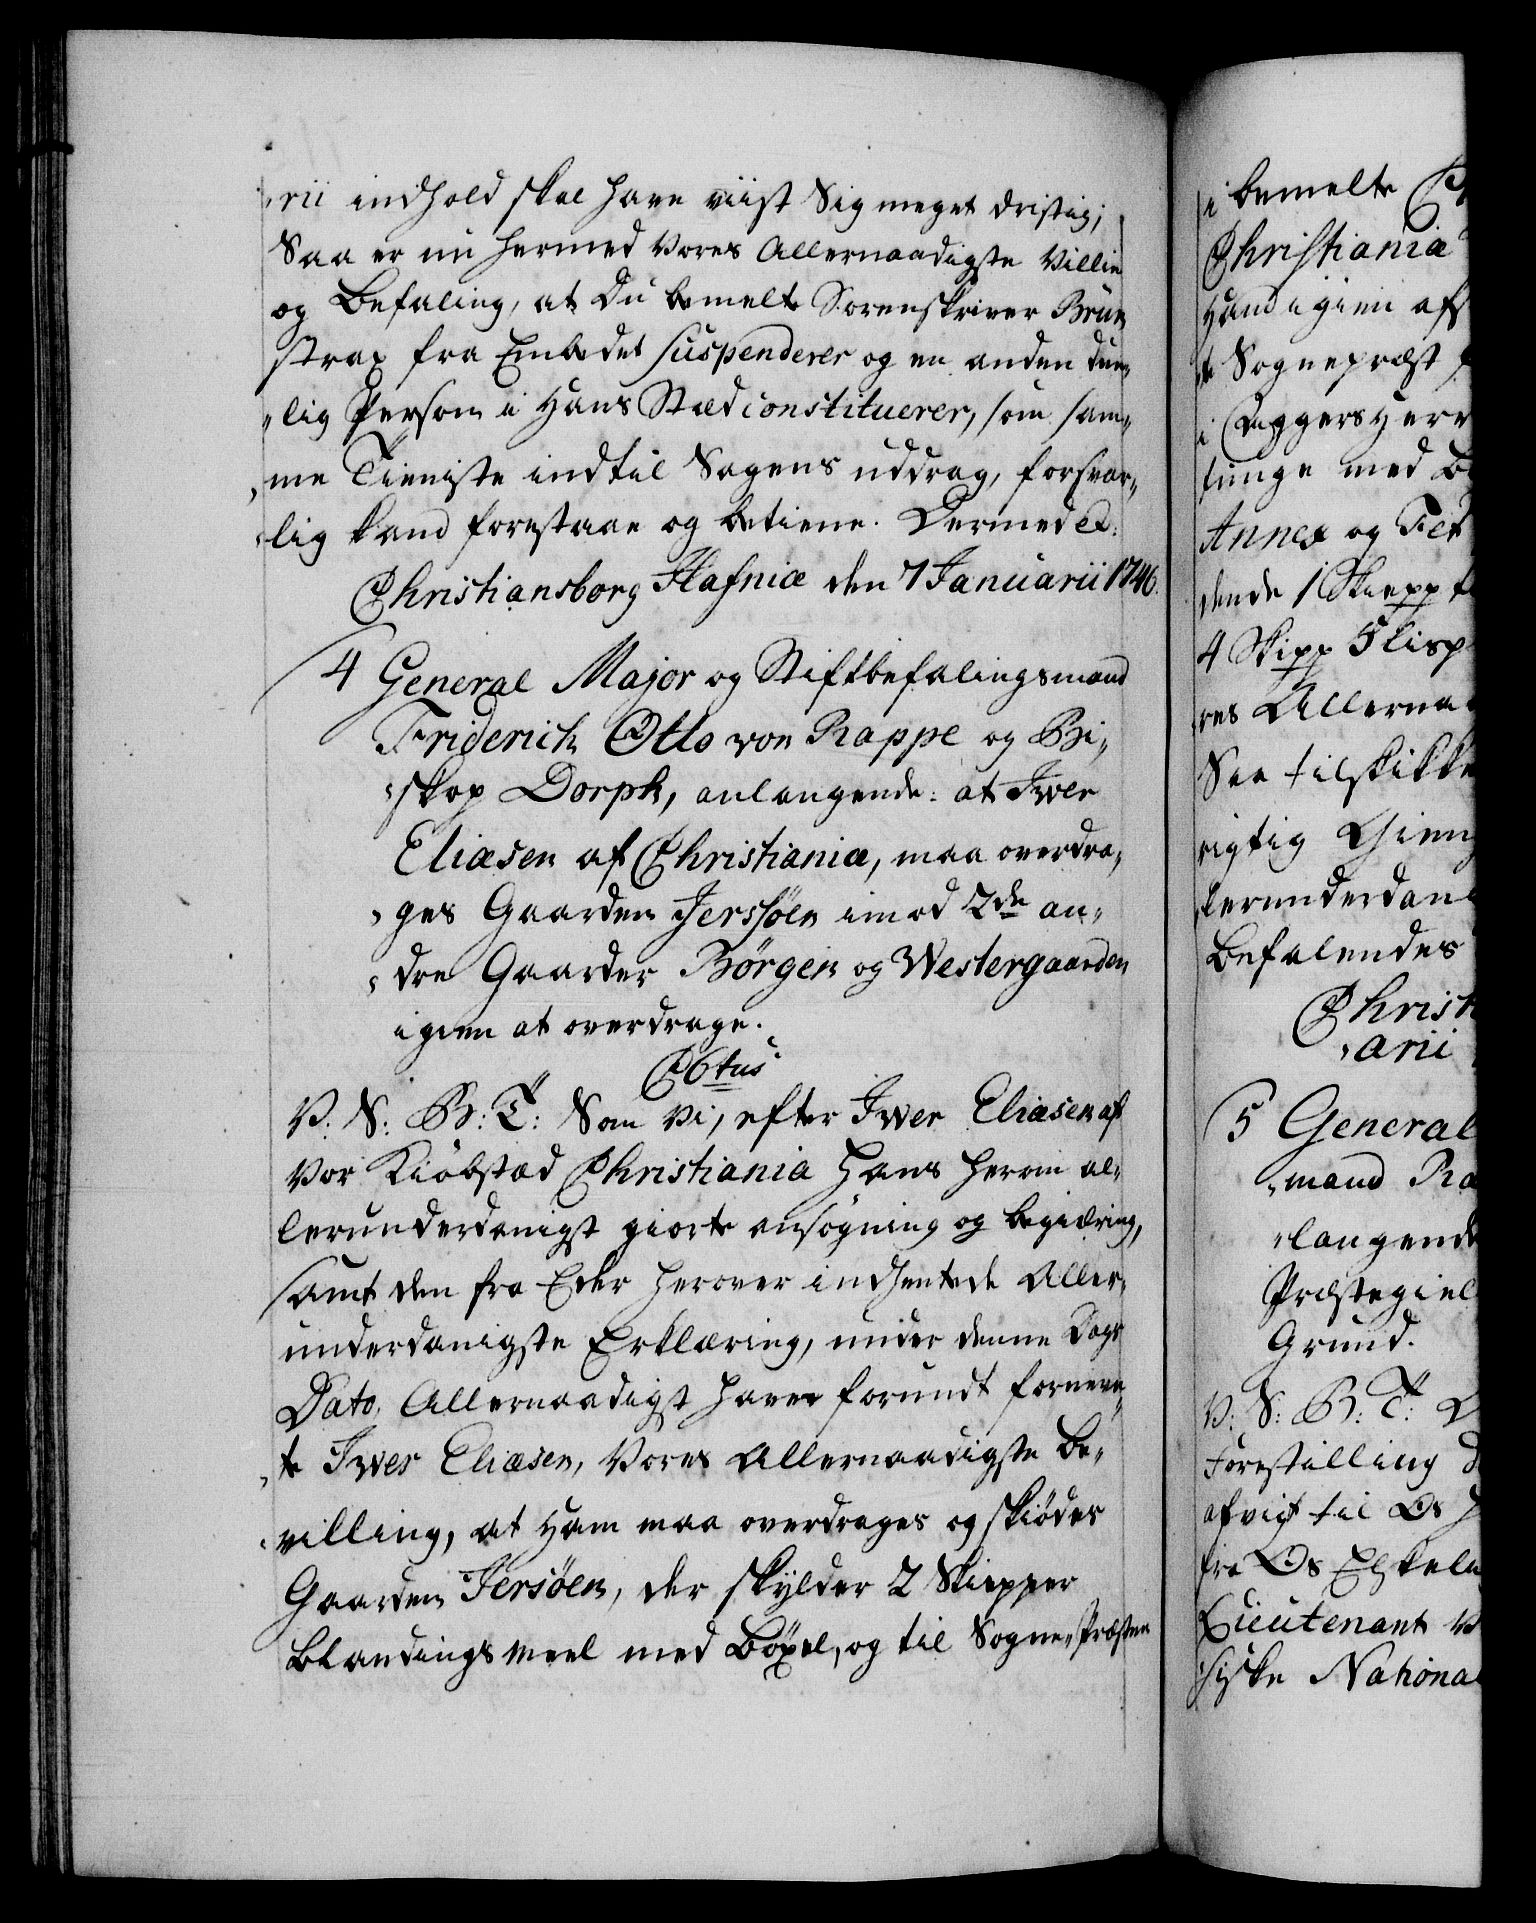 rii indhold skal have viist Sig meget dristig;
Saa er nu hermed Vores Allernaadigste Villie
og Befaling, at Du bemelte Sorenskriver Brün
strax fra Embedet suspenderer og en anden due„
„lig Person i Hans Stæd constituerer, som sam„
„me Tieniste indtil Sagens uddrag, forsvar„
„lig kand forestaae og betiene. Dermed et:
Christiansborg Hafniæ den 7 Januarii 1746.
4 General Major og Stiftbefalingsmand
Friderich Otto von Rappe og Bi„
„skop Dorph, anlangende: at Iwer
Eliæsen af Christiania, maa overdra„
„ges Gaarden Jersøen imod 2de an„
„dre Gaarder Børgen og Westergaarden
igien at overdrage.
C6tus
V. S: B: T: Som Vi, efter Iwer Eliæsen af
Vor Kiøbstæd Christiania Hans herom al„
lerunderdanigst giorte ansøgning og begiæring,
samt den fra Eder herover indhentede Aller„
underdanigste Erklæring, under denne Dags
Dato, Allernaadigst haver forundt fornevn„
„te Iwer Eliæsen, Vores Allernaadigste be„
„villing, at Ham maa overdrages og skiødes
Gaarden Jersøen, der skylder 2 Skiepper
blandings meel med bøxel, og til Sogne„Præsten
i bemelte
Christiania
Hand igien af
te Sognepræst
i Aggers Herr
tinge med B
Annex og Fiet
dende 1 Skiepp
4 Skipp 5 Lisp
res Allernaa
Saa tilskikke
rigtig Gien
lerunderdan
Befalendes
Christ
„arii
5 General
„mand Ra
„langende
Præstegiel
Grund.
V: S: B: T:
Forestilling
afvigt til Os
fra Os Elskel
Lieutenant
siske National